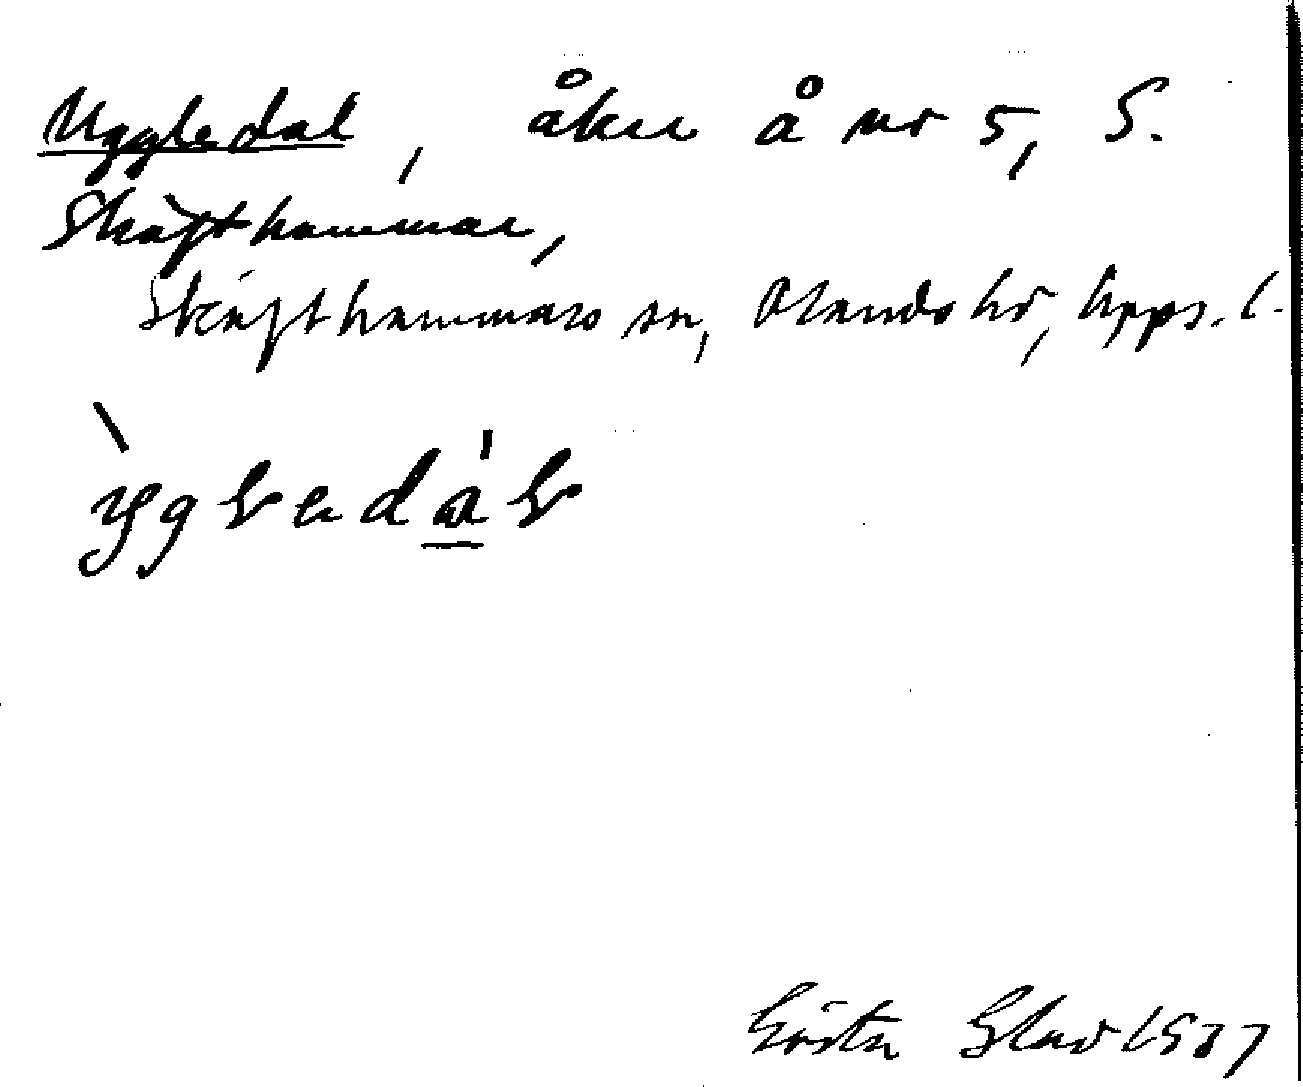 Uggledal, åker å nr 5, S.
Skäfthammar,
Skäfthammars sn, Olands hd, Upps. l.
Gösta Glad 1937